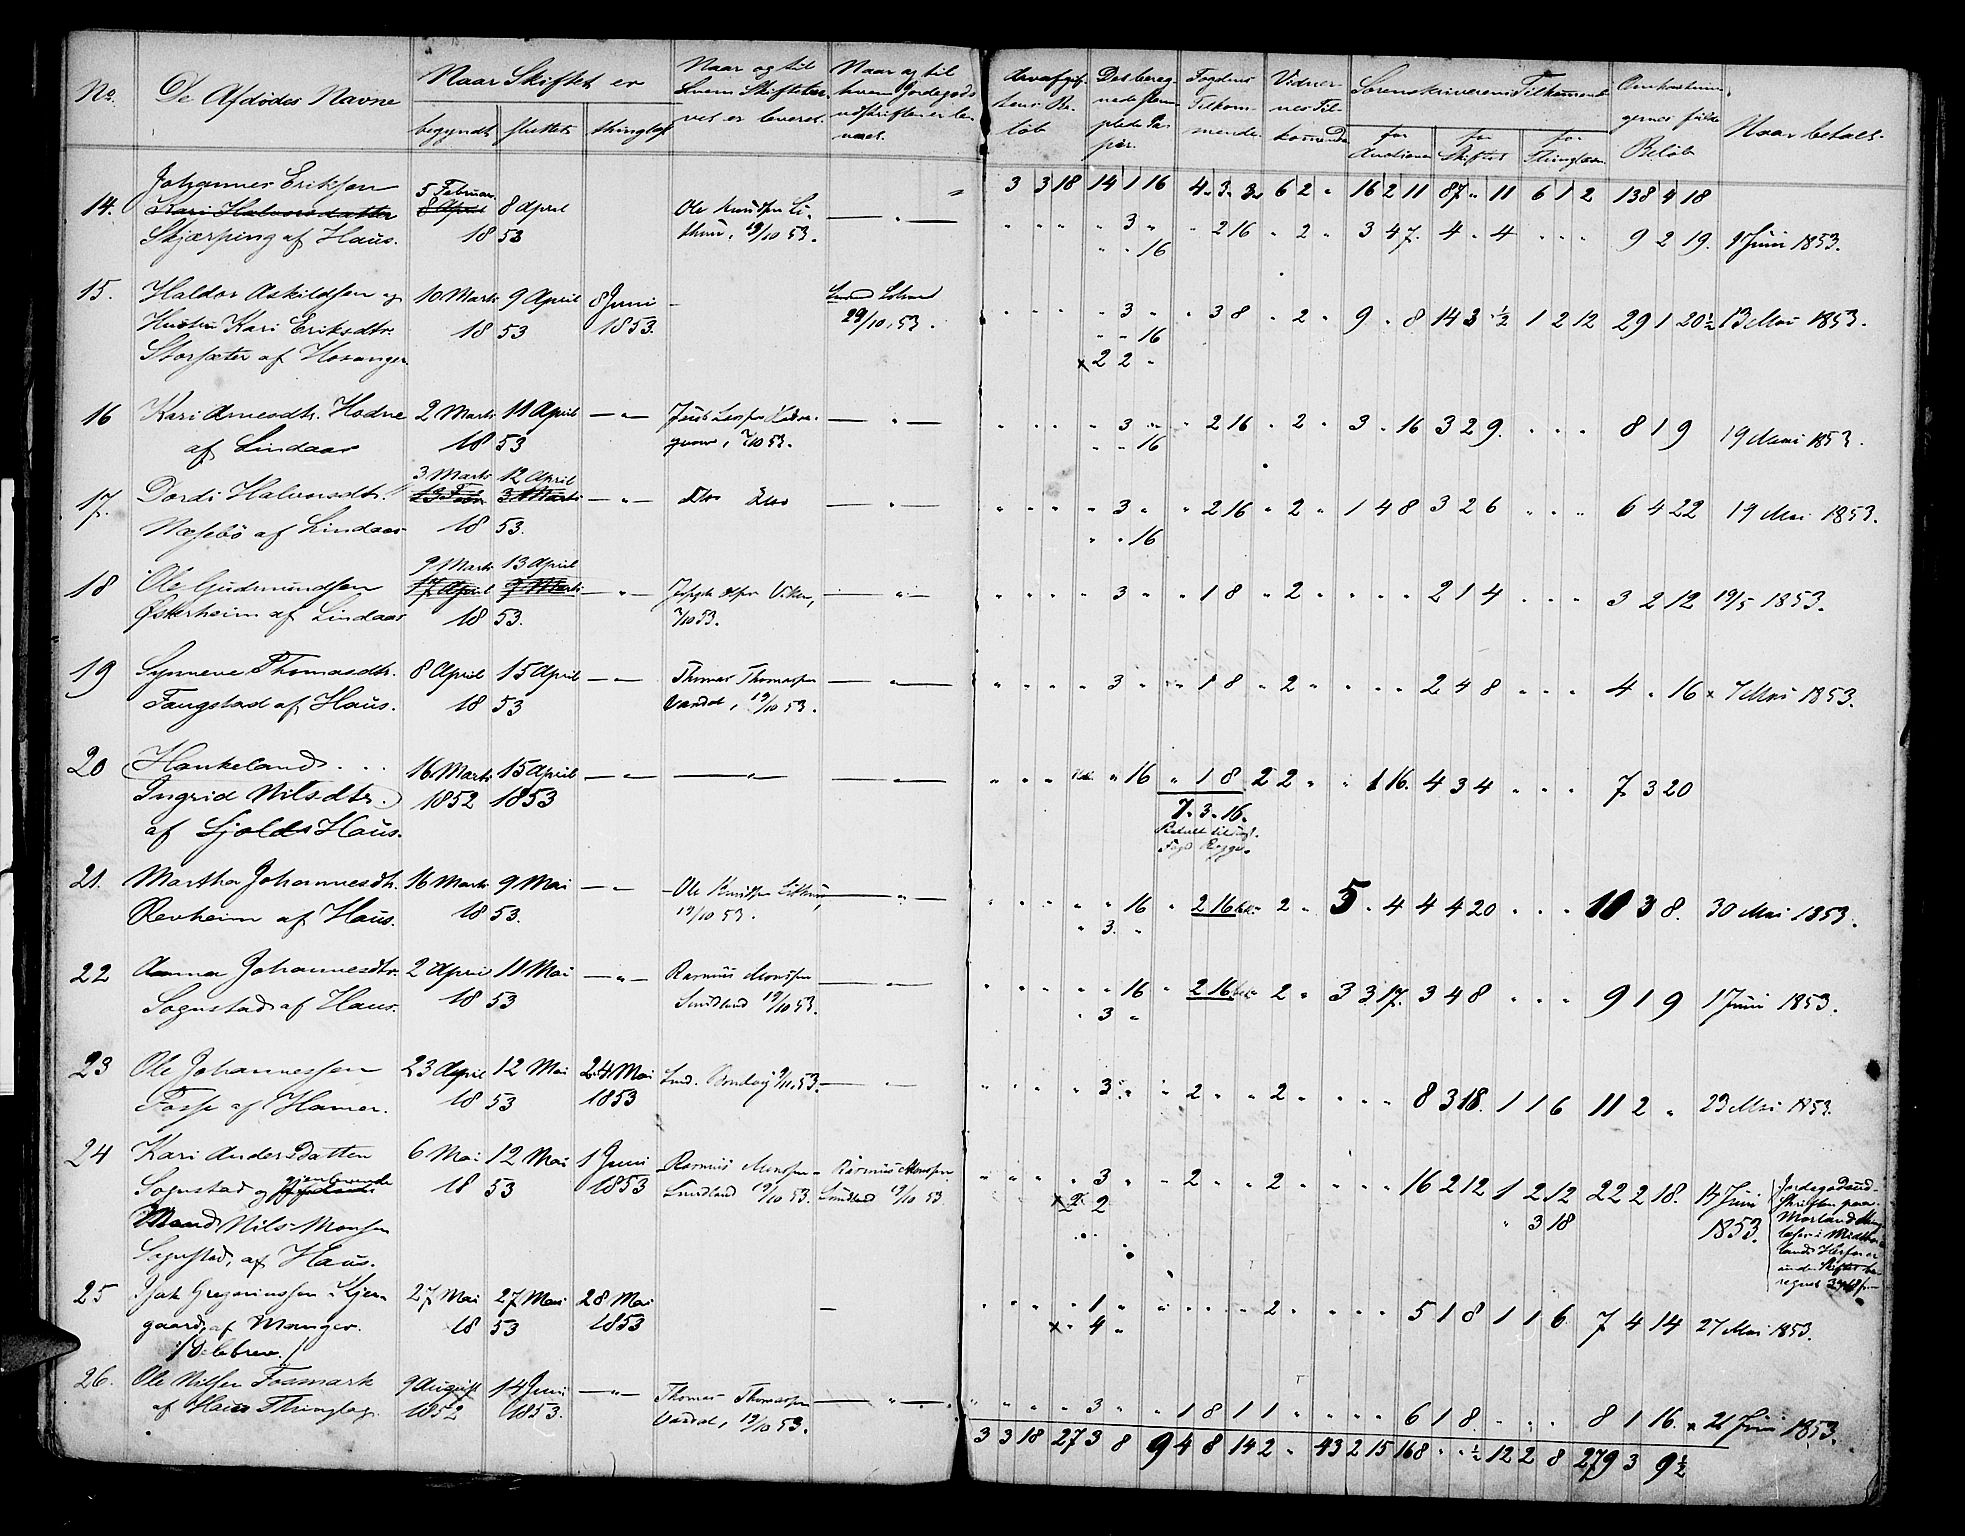 No. De Afdødes Navne Naar Skiftet er Naar og til hvem Skiftebrevet er leveret. Naar og til hvem Jordegods udskriften er leveret.
begyndt sluttet thinglæst
Arveafgiftens Beløb Det beregnede stemplede Papir. Fogdens Tilkommende Vidnernes Tilkommende Sorenskriverens Tilkommende Omkostningernes fulde Beløb Naar betalt.
for Auctioner for Skiftet for Thinglæsn.
3 3 18 14 1 16 4 3 3 6 2 " 16 2 11 87 " 11 6 1 2 138 4 18
14. Johannes Eriksen 5 Februar
Kari Halvorsdatter 8 April 8 April Ole Knudsen Li- — " — " " " " 3 " " 2 16 " 2 " 3 4 7. 4 " 4 " " " 9 2 19. 1 Juni 1853.
Skjærping af Haus. 18 53 thun, 19/10 53. " " 16
15. Haldor Askildsen og 10 Marts 9 April 8 Juni — " " " " 3 " " 3 8 " 2 " 9 " 8 14 3 ½ 1 2 12 29 1 20½ 13 Mai 1853.
Hustru Kari Eriksdtr. 18 53 1853. 29/10. 53. " " 16
Storsæter af Hosanger x 2 2 "
16 Kari Arnesdtr. Hodne 2 Marts 11 April — " — — " — " " " " 3 " " 2 16 " 2 " 3 " 16 3 2 9. " " " 8 1 9 19 Mai 1853.
af Lindaas 18 53 7/10 53. " " 16
3 Marts 12 April
17. Dordi Halvorsdtr. 13 Febr 3 Marts — " — Dto Dto — " — " " " " 3 " " 2 16 " 2 " 1 4 8 3 2 6 " " " 6 4 22 19 Mai 1853.
Næsebö af Lindaas 18 53. " " 16
9 Marts 13 April
18 Ole Gudmundsen 17 April 9 Marts — " — — " — " " " " 3 " " 1 8 " 2 " " " " 2 1 4 " " " 3 2 12 19/5 1853.
Østerheim af Lindaas 18 53. 7/10 53.
19 Synneve Thomasdtr. 8 April 15 April — " — Thomas Thomassen — " — " " " " 3 " " 1 8 " 2 " " " " 2 4 8 " " " 4 " 16 x 7 Mai 1853.
Fangstad af Haus. 18 53 Vardal, 19/10 53.
20 Hankeland . . . 16 Marts 15 April — " — — " — — " — " " " " 16 " 1 8 2 2 " " 1 16. 4 3 4 " " " 7 3 20
Ingrid Nilsdtr. 1852 1853 7. 3. 16.
af Gjolds Haus.
21. Martha Johannesdtr. 16 Marts 9 Mai — " — Ole Knudsen Lithun, — " — " " " " " 16 " 2 16 " 2 " 5 " 4 4 4 20 " " " 10 3 8. 30 Mai 1853.
Revheim af Haus. 18 53. 19/10 53. " 3. "
22 Anna Johannesdtr. 2 April 11 Mai — " — Rasmus Monsen — " — " " " " " 16 " 2 16 " 2 " 3 3 17. 3 4 8 " " " 9 1 9 1 Juni 1853.
Sognstad af Haus. 18 53 Smidland 19/10 53. " 3 "
23 Ole Johannessen 23 April 12 Mai 24 Mai — " — " " " " 3 " " 2 " " 2 " " " " 8 3 18. 1 1 6 11 2 " 23 Mai 1853.
Fosse af Hamer. 18 53 1853
24 Kari Andersdatter 6 Mai 12 Mai 1 Juni Rasmus Monsen Rasmus Monsen " " " " 3 " " 2 " " 2 " " " " 16 2 12 1 2 12 22 2 18. 14 Juni
Sognstad og gjenlevende 18 53 1853 Smidland 19/10 53. Smidland 19/10 53 x 2 2 " 3 18 1853.
Mand Nils Monsen
Sognstad, af Haus.
25 Isak Gregoriussen i Kjær- 27 Mai 27 Mai 28 Mai — " " " " 1 " " " " " 2 " " " " 5 1 8 1 1 6. 7 4 14 27 Mai 1853.
gaard, af Manger. 18 53 1853 x " 4 "
26. Ole Nilsen Fosmark 9 August 14 Juni — " — Thomas Thomassen — " — " " " " 3 " " 1 8 1 1 " " " " 6 1 8. " " " 8 1 16. x 21 Juni 1853.
af Haus Thinglag. 1852 1853. Vardal, 19/10 53.
3 3 18 27 3 8 9 4 8 14 2 " 43 2 15 168 " ½ 12 2 8 279 3 9½